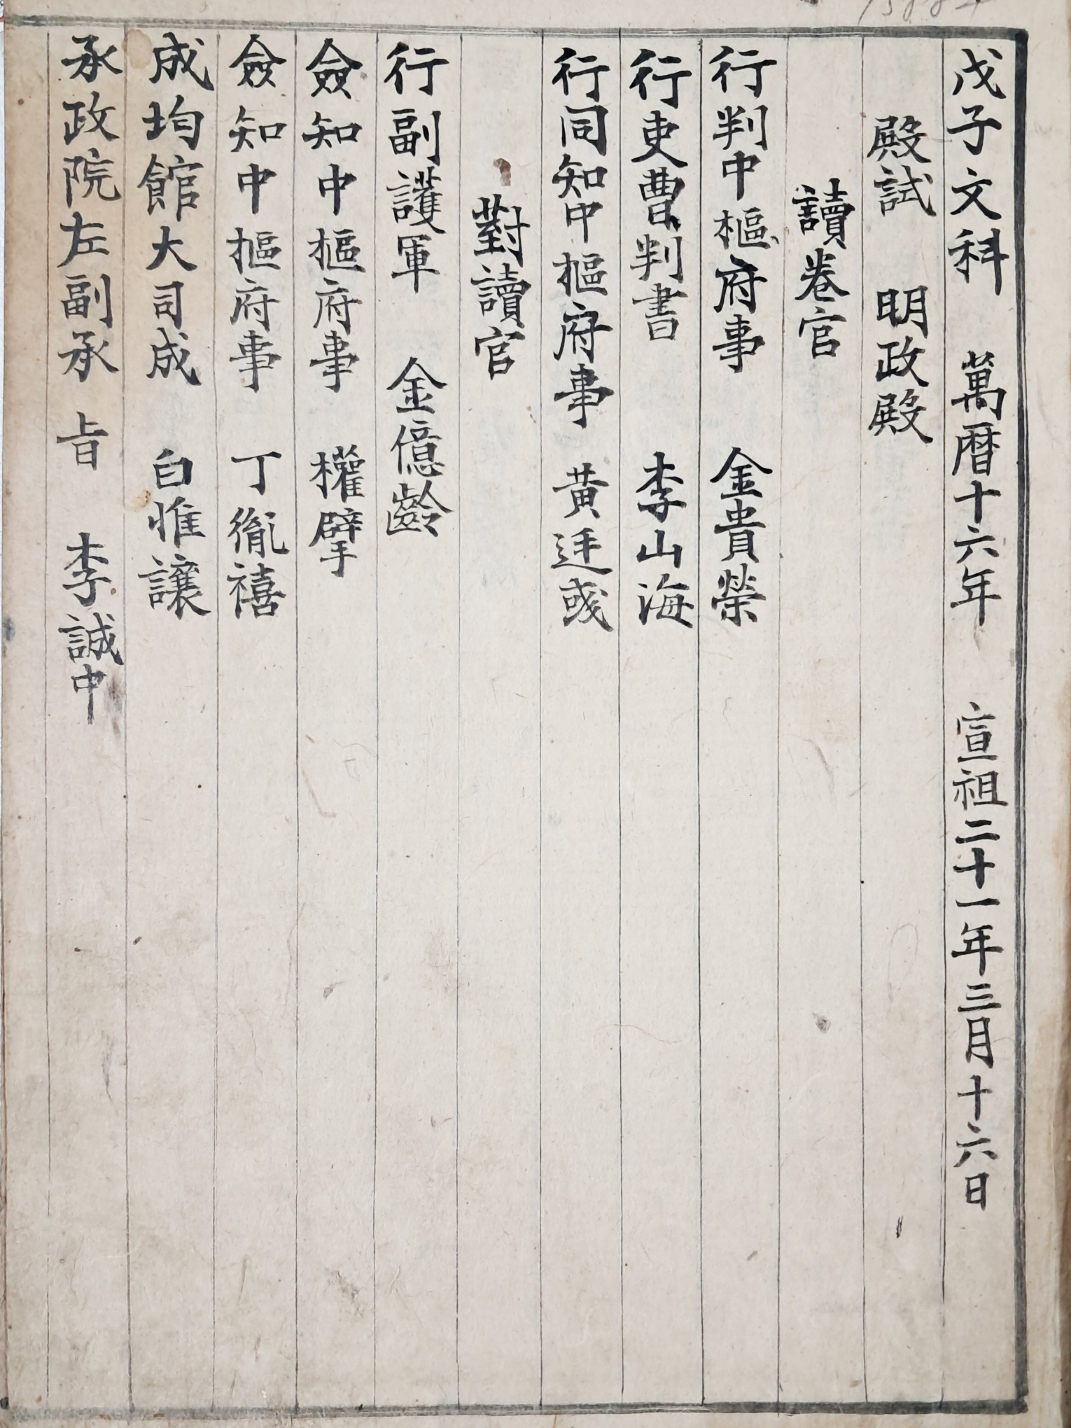 戊子文科　萬曆十六年　宣祖二十一年三月十六日
殿試　明政殿
讀卷官
行判中樞府事　金貴榮
行吏曹判書　李山海
行同知中樞府事　黃廷彧
對讀官
行副護軍　金億齡
僉知中樞府事　權擘
僉知中樞府事　丁胤禧
成均館大司成　白惟讓
承政院左副承旨　李誠中